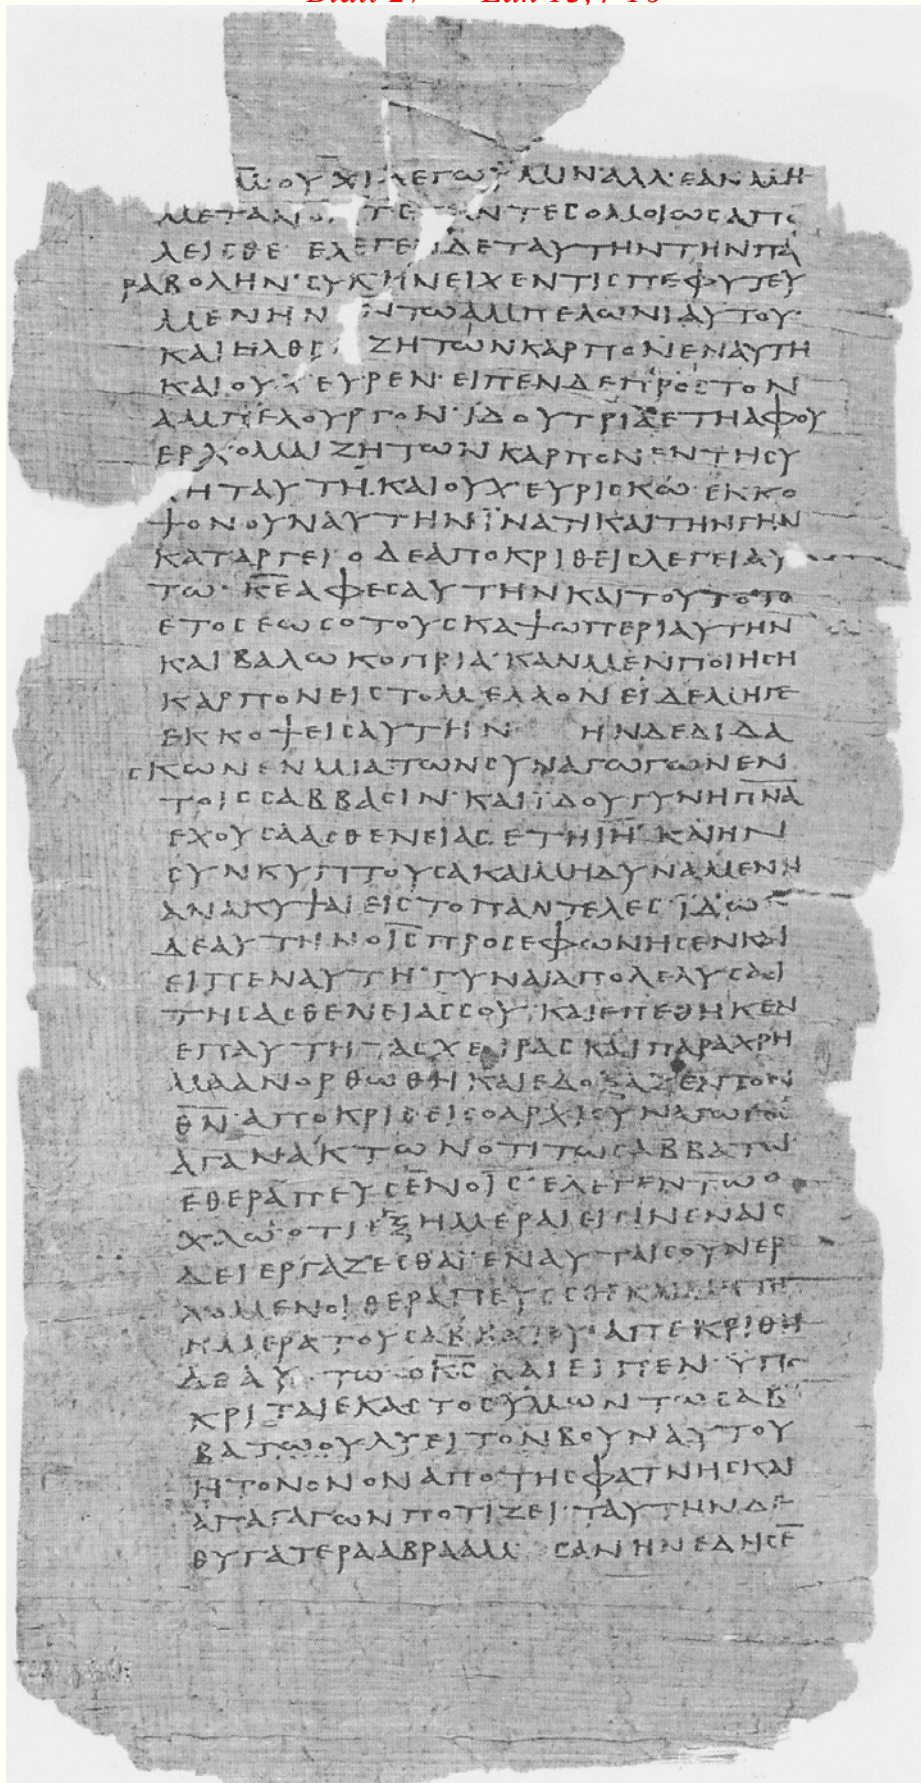 Blatt 27 Luk 13,4-16
Μ̅ ΟΥΧΙ ΛΕΓΩ ΥΜΙΝ ΑΛΛ ΕΑΝ ΜΗ
ΟΜΟΙΩΣ ΑΠΟ
ΛΕΙΣΘΕ ΕΛΕΓΕΝ ΔΕ ΤΑΥΤΗΝ ΤΗΝ ΠΑ
ΡΑΒΟΛΗΝ· ΣΥΚΗΝ ΕΙΧΕΝ ΤΙΣ ΠΕΦΥΤΕΥ
ΜΕΝΗΝ ΕΝ ΤΩ ΑΜΠΕΛΩΝΙ ΑΥΤΟΥ·
ΚΑΙ ΗΛΘΕΝ ΖΗΤΩΝ ΚΑΡΠΟΝ ΕΝ ΑΥΤΗ
ΚΑΙ ΟΥΧ ΕΥΡΕΝ· ΕΙΠΕΝ ΔΕ ΠΡΟΣ ΤΟΝ
ΑΜΠΕΛΟΥΡΓΟΝ· ΙΔΟΥ ΤΡΙΑ ΕΤΗ ΑΦ ΟΥ
ΕΡΧΟΜΑΙ ΖΗΤΩΝ ΚΑΡΠΟΝ ΕΝ ΤΗ ΣΥ
ΚΗ ΤΑΥΤΗ ΚΑΙ ΟΥΧ ΕΥΡΙΣΚΩ· ΕΚΚΟ
ΨΟΝ ΟΥΝ ΑΥΤΗΝ· ΪΝΑ ΤΙ ΚΑΙ ΤΗΝ ΓΗΝ
ΚΑΤΑΡΓΕΙ· Ο ΔΕ ΑΠΟΚΡΙΘΕΙΣ ΛΕΓΕΙ ΑΥ
ΤΩ· Κ̅Ε̅ ΑΦΕΣ ΑΥΤΗΝ ΚΑΙ ΤΟΥΤΟ ΤΟ
ΕΤΟΣ ΕΩΣ ΟΤΟΥ ΣΚΑΨΩ ΠΕΡΙ ΑΥΤΗΝ
ΚΑΙ ΒΑΛΩ ΚΟΠΡΙΑ· ΚΑΝ ΜΕΝ ΠΟΙΗΣΗ
ΚΑΡΠΟΝ ΕΙΣ ΤΟ ΜΕΛΛΟΝ ΕΙ ΔΕ ΜΗΓΕ
ΕΚΚΟΨΕΙΣ ΑΥΤΗΝ· ΗΝ ΔΕ ΔΙΔΑ
ΣΚΩΝ ΕΝ ΜΙΑ ΤΩΝ ΣΥΝΑΓΩΓΩΝ ΕΝ
ΤΟΙΣ ΣΑΒΒΑΣΙΝ· ΚΑΙ ΪΔΟΥ ΓΥΝΗ Π̅Ν̅Α̅
ΕΧΟΥΣΑ ΑΣΘΕΝΕΙΑΣ ΕΤΗ Ι̅Η̅ ΚΑΙ ΗΝ
ΣΥΝΚΥΠΤΟΥΣΑ ΚΑΙ ΜΗ ΔΥΝΑΜΕΝΗ
ΑΝΑΚΥΨΑΙ ΕΙΣ ΤΟ ΠΑΝΤΕΛΕΣ· ΪΔΩΝ
ΔΕ ΑΥΤΗΝ Ο Ι̅Σ̅ ΠΡΟΣΕΦΩΝΗΣΕΝ ΚΑΙ
ΕΙΠΕΝ ΑΥΤΗ· ΓΥΝΑΙ ΑΠΟΛΕΛΥΣΑΙ
ΤΗΣ ΑΣΘΕΝΕΙΑΣ ΣΟΥ· ΚΑΙ ΕΠΕΘΗΚΕΝ
ΕΠ ΑΥΤΗ ΤΑΣ ΧΕΙΡΑΣ ΚΑΙ ΠΑΡΑΧΡΗ
ΜΑ ΑΝΟΡΘΩΘΗ ΚΑΙ ΕΔΟΞΑΖΕΝ ΤΟΝ
Θ̅Ν̅· ΑΠΟΚΡΙΘΕΙΣ Ο ΑΡΧΙΣΥΝΑΓΩΓΟΣ
ΑΓΑΝΑΚΤΩΝ ΟΤΙ ΤΩ ΣΑΒΒΑΤΩ
ΕΘΕΡΑΠΕΥΣΕΝ Ο Ι̅Σ̅· ΕΛΕΓΕΝ ΤΩ Ο
ΧΛΩ ΟΤΙ ΕΞ ΗΜΕΡΑΙ ΕΙΣΙΝ ΕΝ ΑΙΣ
ΔΕΙ ΕΡΓΑΖΕΣΘΑΙ· ΕΝ ΑΥΤΑΙΣ ΟΥΝ ΕΡ
ΧΟΜΕΝΟΙ ΘΕΡΑΠΕΥΕΣΘΕ ΚΑΙ ΜΗ ΤΗ
ΗΜΕΡΑ ΤΟΥ ΣΑΒΒΑΤΟΥ· ΑΠΕΚΡΙΘΗ
ΔΕ ΑΥΤΩ Ο Κ̅Σ̅ ΚΑΙ ΕΙΠΕΝ· ΥΠΟ
ΚΡΙΤΑΙ ΕΚΑΣΤΟΣ ΥΜΩΝ ΤΩ ΣΑΒ
ΒΑΤΩ ΟΥ ΛΥΕΙ ΤΟΝ ΒΟΥΝ ΑΥΤΟΥ
Η ΤΟΝ ΟΝΟΝ ΑΠΟ ΤΗΣ ΦΑΤΝΗΣ ΚΑΙ
ΑΠΑΓΑΓΩΝ ΠΟΤΙΖΕΙ· ΤΑΥΤΗΝ ΔΕ
ΘΥΓΑΤΕΡΑ ΑΒΡΑΑΜ ΣΑΝ ΗΝ ΕΔΗΣΕ̅